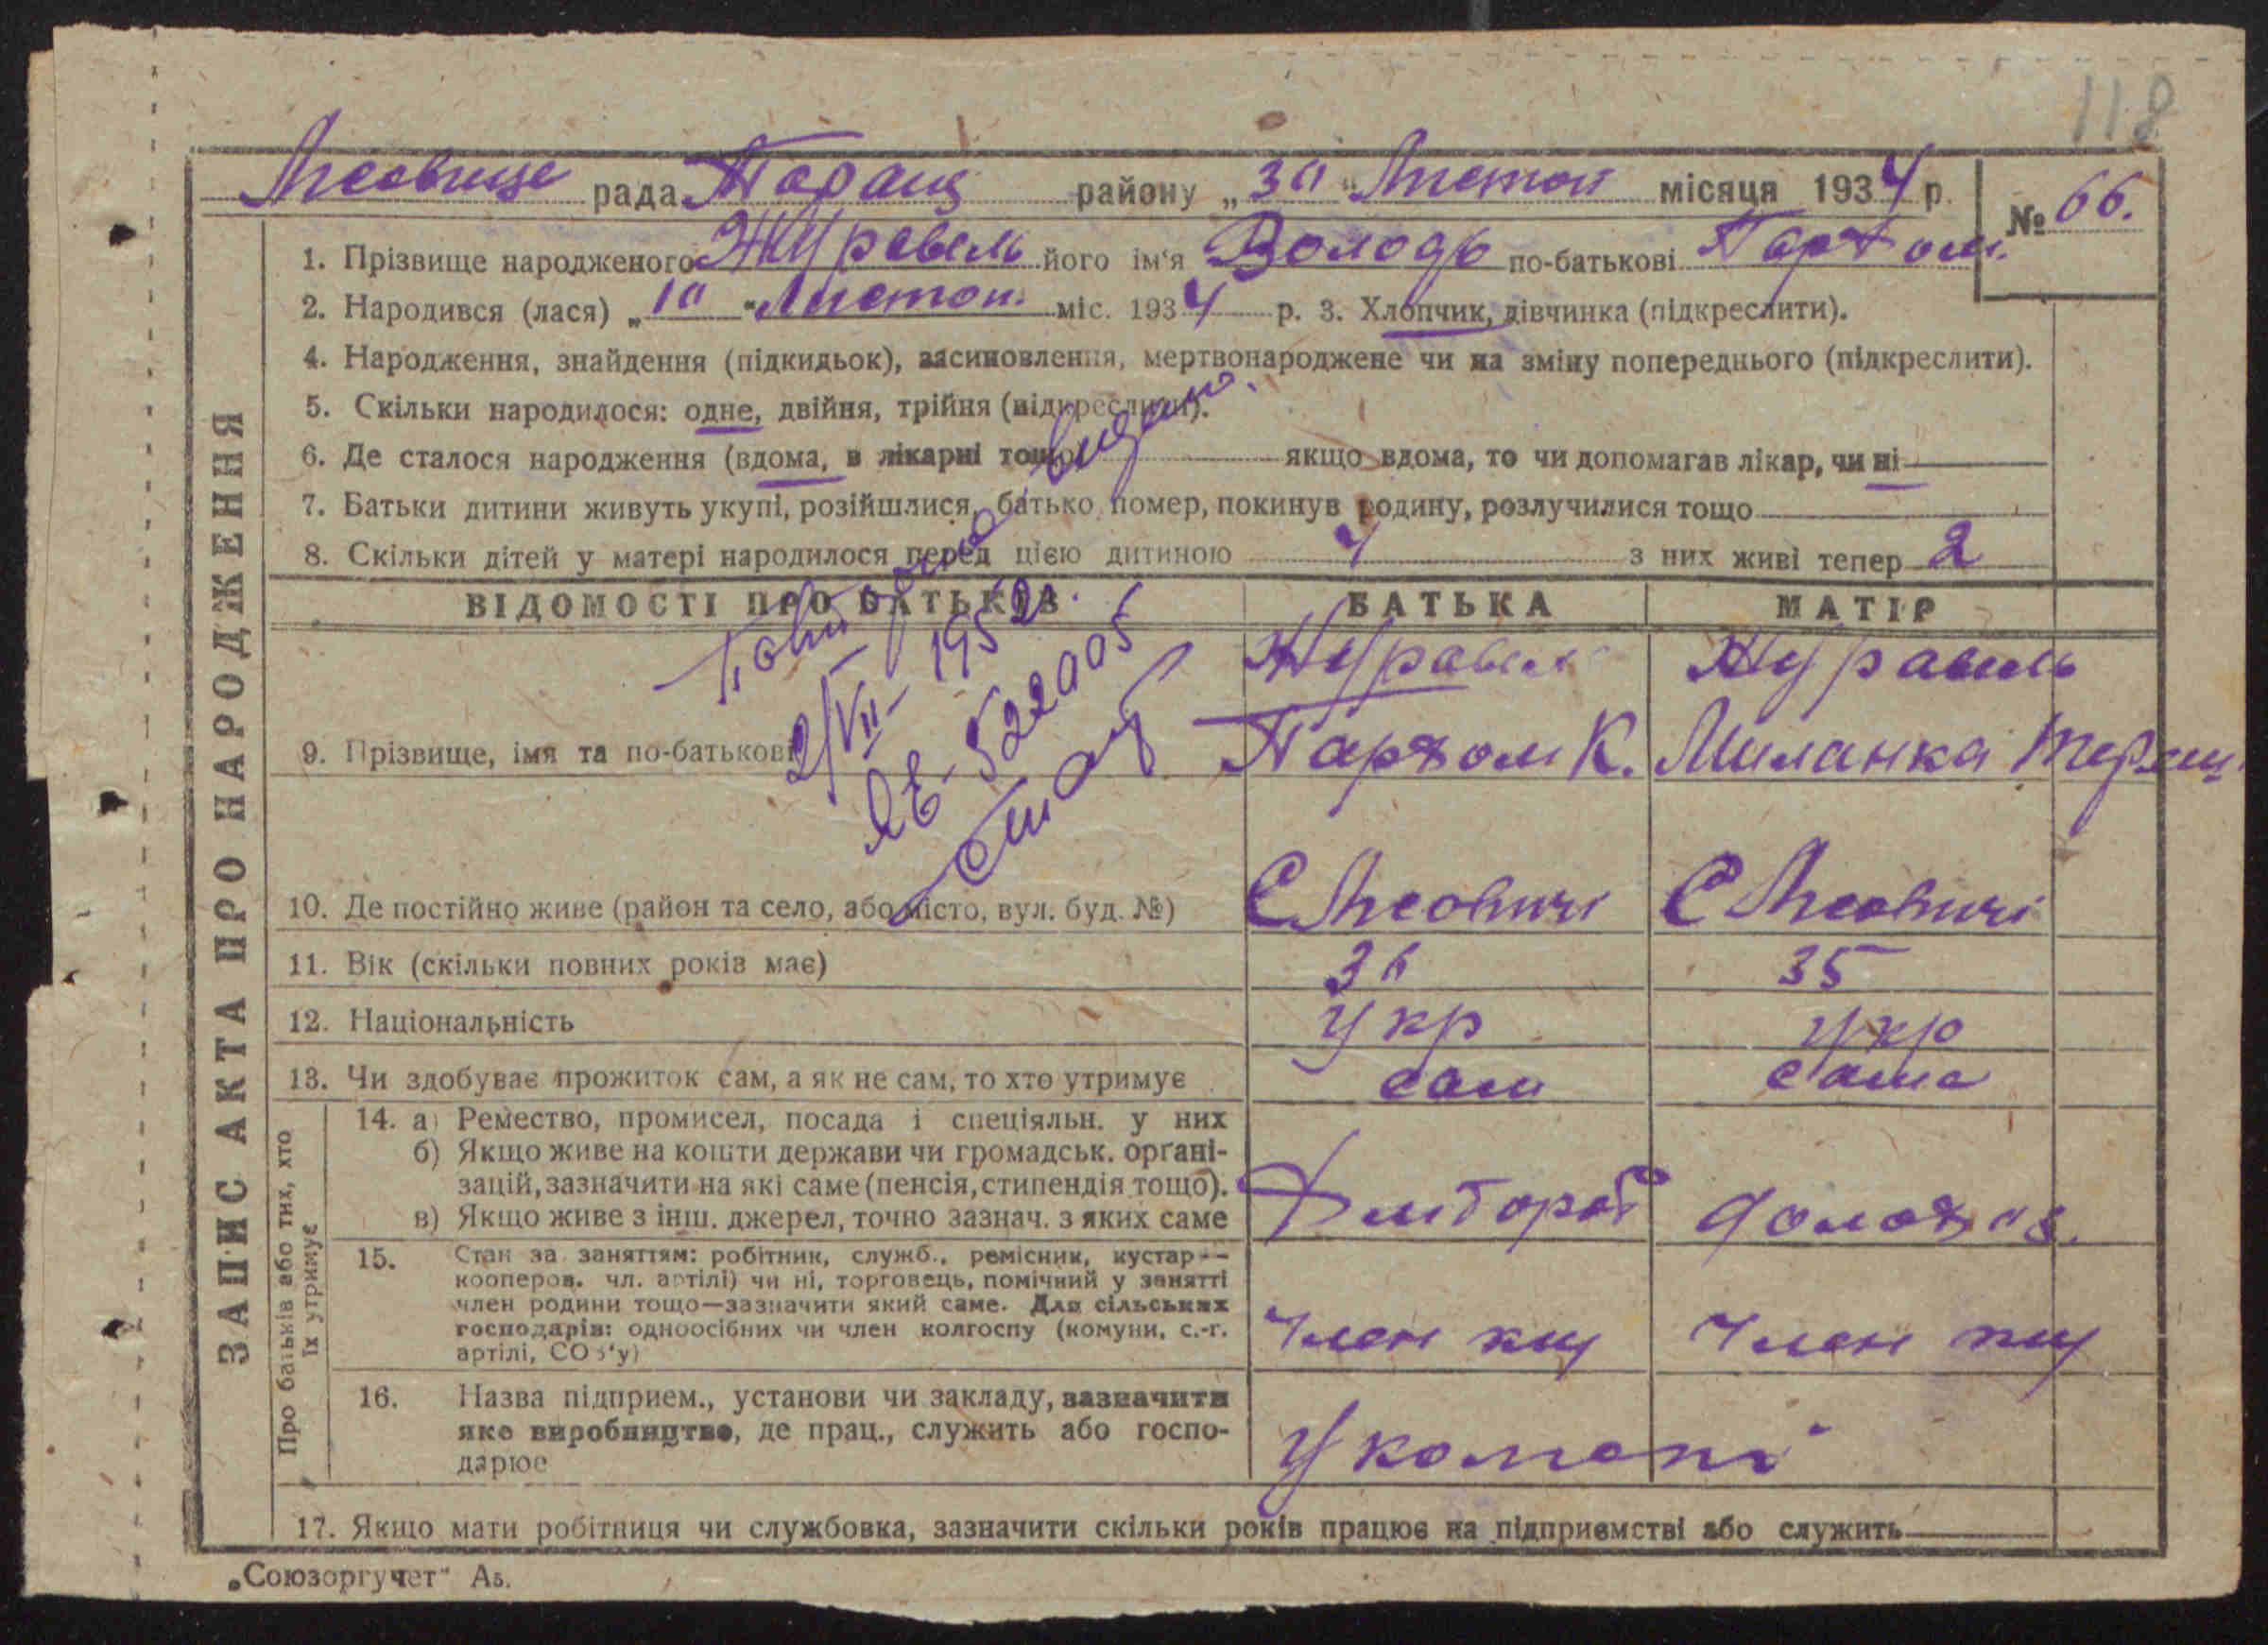 118
Лісовице рада Таращ району „30" Листоп місяця 1934 р. № 66.
1. Прізвище народженого Журавель його ім'я Володь по-батькові Пархом.
2. Народився (лася) „10" Листоп. міс. 1934 р. 3. Хлопчик, дівчинка (підкреслити).
4. Народження, знайдення (підкидьок), засиновлення, мертвонароджене чи на зміну попереднього (підкреслити).
5. Скільки народилося: одне, двійня, трійня (підкреслити).
6. Де сталося народження (вдома, в лікарні тощо) якщо вдома, то чи допомагав лікар, чи ні
7. Батьки дитини живуть укупі, розійшлися, батько помер, покинув родину, розлучилися тощо
8. Скільки дітей у матері народилося перед цією дитиною 4 з них живі тепер 2
ВІДОМОСТІ ПРО БАТЬКІВ БАТЬКА МАТІР
Повторно видано.
2/VII-1952.
522005
Журавель Журавель
9. Прізвище, імя та по-батькові Пархом К. Миланка
10. Де постійно живе (район та село, або місто, вул. буд. №) С Лісовичі С Лісовичі
11. Вік (скільки повних років має) 36 35
12. Національність Укр Укр
13. Чи здобуває прожиток сам, а як не сам, то хто утримує сам сама
14. а) Ремество, промисел, посада і спеціяльн. у них
б) Якщо живе на кошти держави чи громадськ. органі-
зацій, зазначити на які саме (пенсія, стипендія тощо).
в) Якщо живе з інш. джерел, точно зазнач. з яких саме
15. Стан за заняттям: робітник, служб., ремісник, кустар--
кооперов. чл. артілі) чи ні, торговець, помічний у занятті
член родини тощо—зазначити який саме. Для сільських
господарів: одноосібних чи член колгоспу (комуни, с.-г.
артілі, СОЗ'у) Член Член
16. Назва підприєм., установи чи закладу, зазначити
яке виробництво, де прац., служить або госпо-
дарює
17. Якщо мати робітниця чи службовка, зазначити скільки років працює на підприємстві або служить
ЗАПИС АКТА ПРО НАРОДЖЕННЯ
Про батьків або тих, хто
їх утримує
„Союзоргучет" А5.